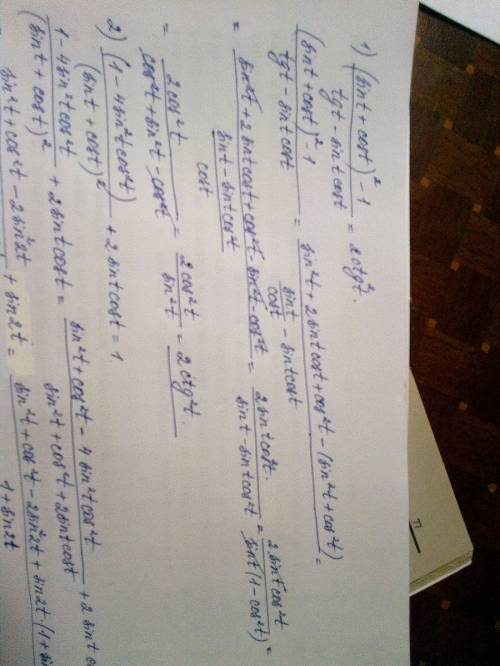 1) ((sint + cost)² - 1)/(tgt - sint cost) = 2ctg²t.
((sint + cost)² - 1)/(tgt - sint cost) = (sin²t + 2sint cost + cos²t - (sin²t + cos²t))/(sint/cost - sint cost) =
= (sin²t + 2sint cost + cos²t - sin²t - cos²t)/((sint - sint cos²t)/cost) = (2sint cos²t)/(sint - sint cos²t) = (2sint cos²t)/(sint(1 - cos²t)) =
= (2cos²t)/(cos²t + sin²t - cos²t) = (2cos²t)/(sin²t) = 2ctg²t.
2) (1 - 4sin²t cos²t)/(sint + cost)² + 2sint cost = 1.
(1 - 4sin²t cos²t)/(sint + cost)² + 2sint cost = (sin²t + cos²t - 4sin²t cos²t)/(sin²t + cos²t + 2sint cost) + 2sint
sin²t + cos²t - 2sin²2t + sin2t = (sin²t + cos²t - 2sin²2t + sin2t·(1 + sin)/(1 + sin2t)